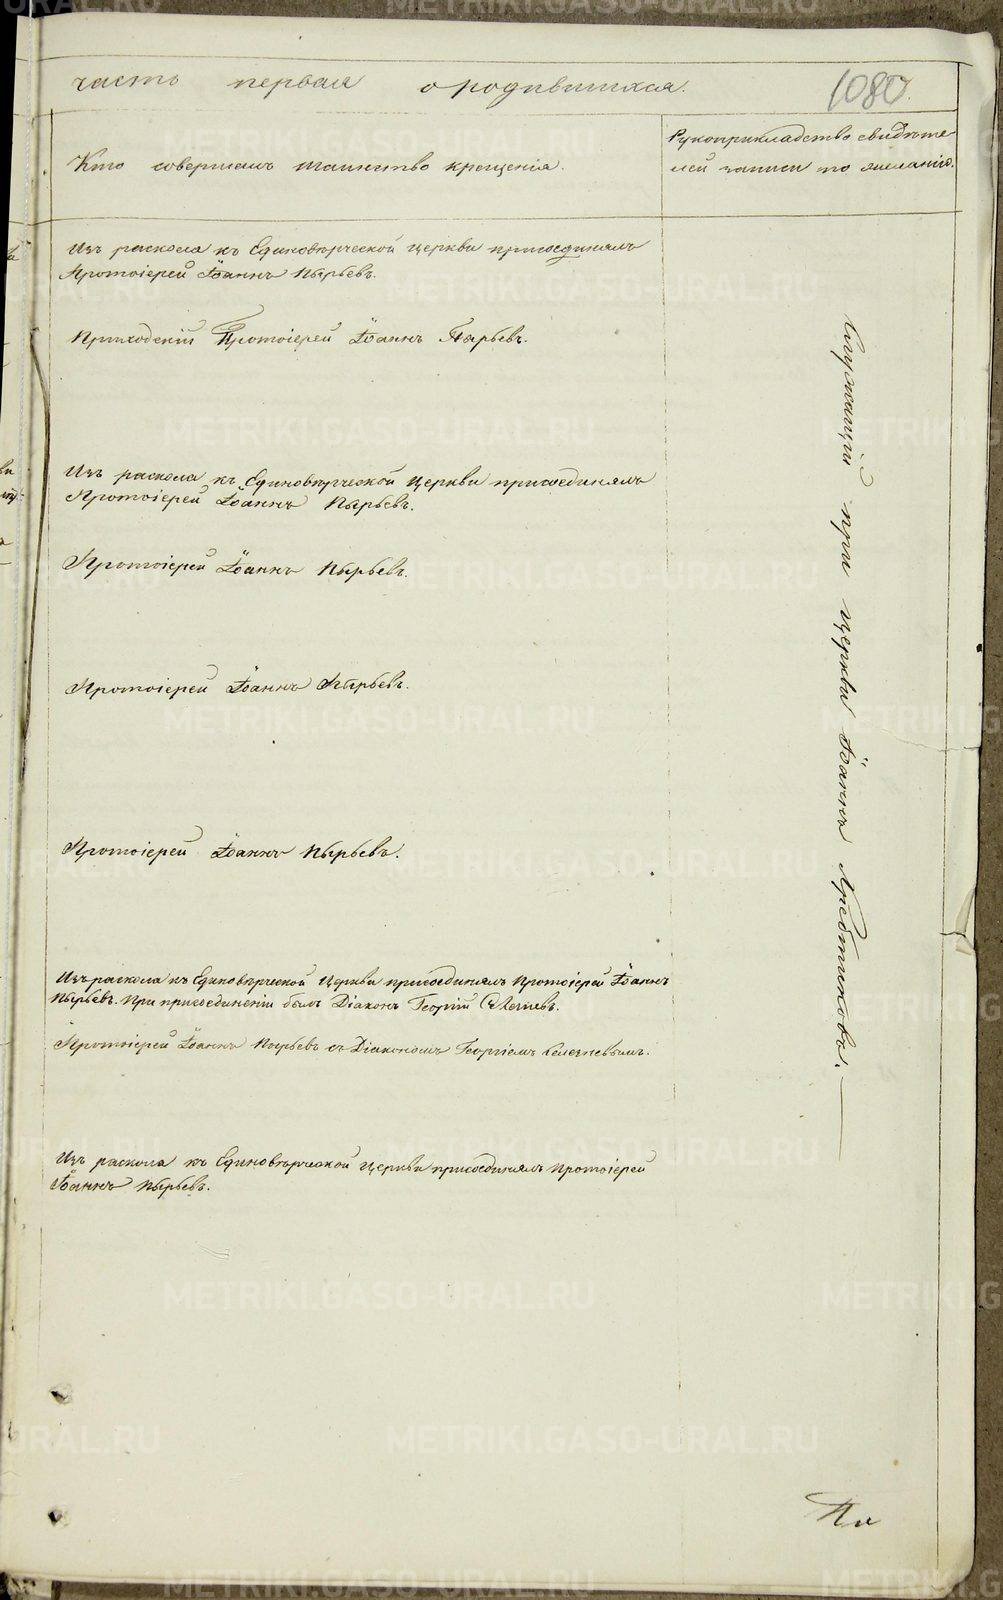 часть первая о родившихся.
1080.
Кто совершалъ таинство крещенія.
Рукоприкладство свидѣте
лей записи по желанію.
Изъ раскола къ Единовѣрческой церкви присоединялъ
Протоіерей Іоаннъ Пырьевъ.
Приходскій Протоіерей Іоаннъ Пырьевъ.
Изъ раскола къ Единовѣрческой церкви присоединялъ
Протоіерей Іоаннъ Пырьевъ.
Протоіерей Іоаннъ Пырьевъ.
Протоіерей Іоаннъ Пырьевъ.
Протоіерей Іоаннъ Пырьевъ.
Изъ раскола къ Единовѣрческой Церкви присоединялъ Протоіерей Іоаннъ
Пырьевъ. При присоединеніи былъ Діаконъ Георгій Селезневъ.
Протоіерей Іоаннъ Пырьевъ съ Діакономъ Георгіемъ Селезневымъ.
Изъ раскола къ Единовѣрческой церкви присоединялъ протоіерей
Іоаннъ Пырьевъ.
Служащій при церкви Іоаннъ
METRIKI.GASO-URAL.RU